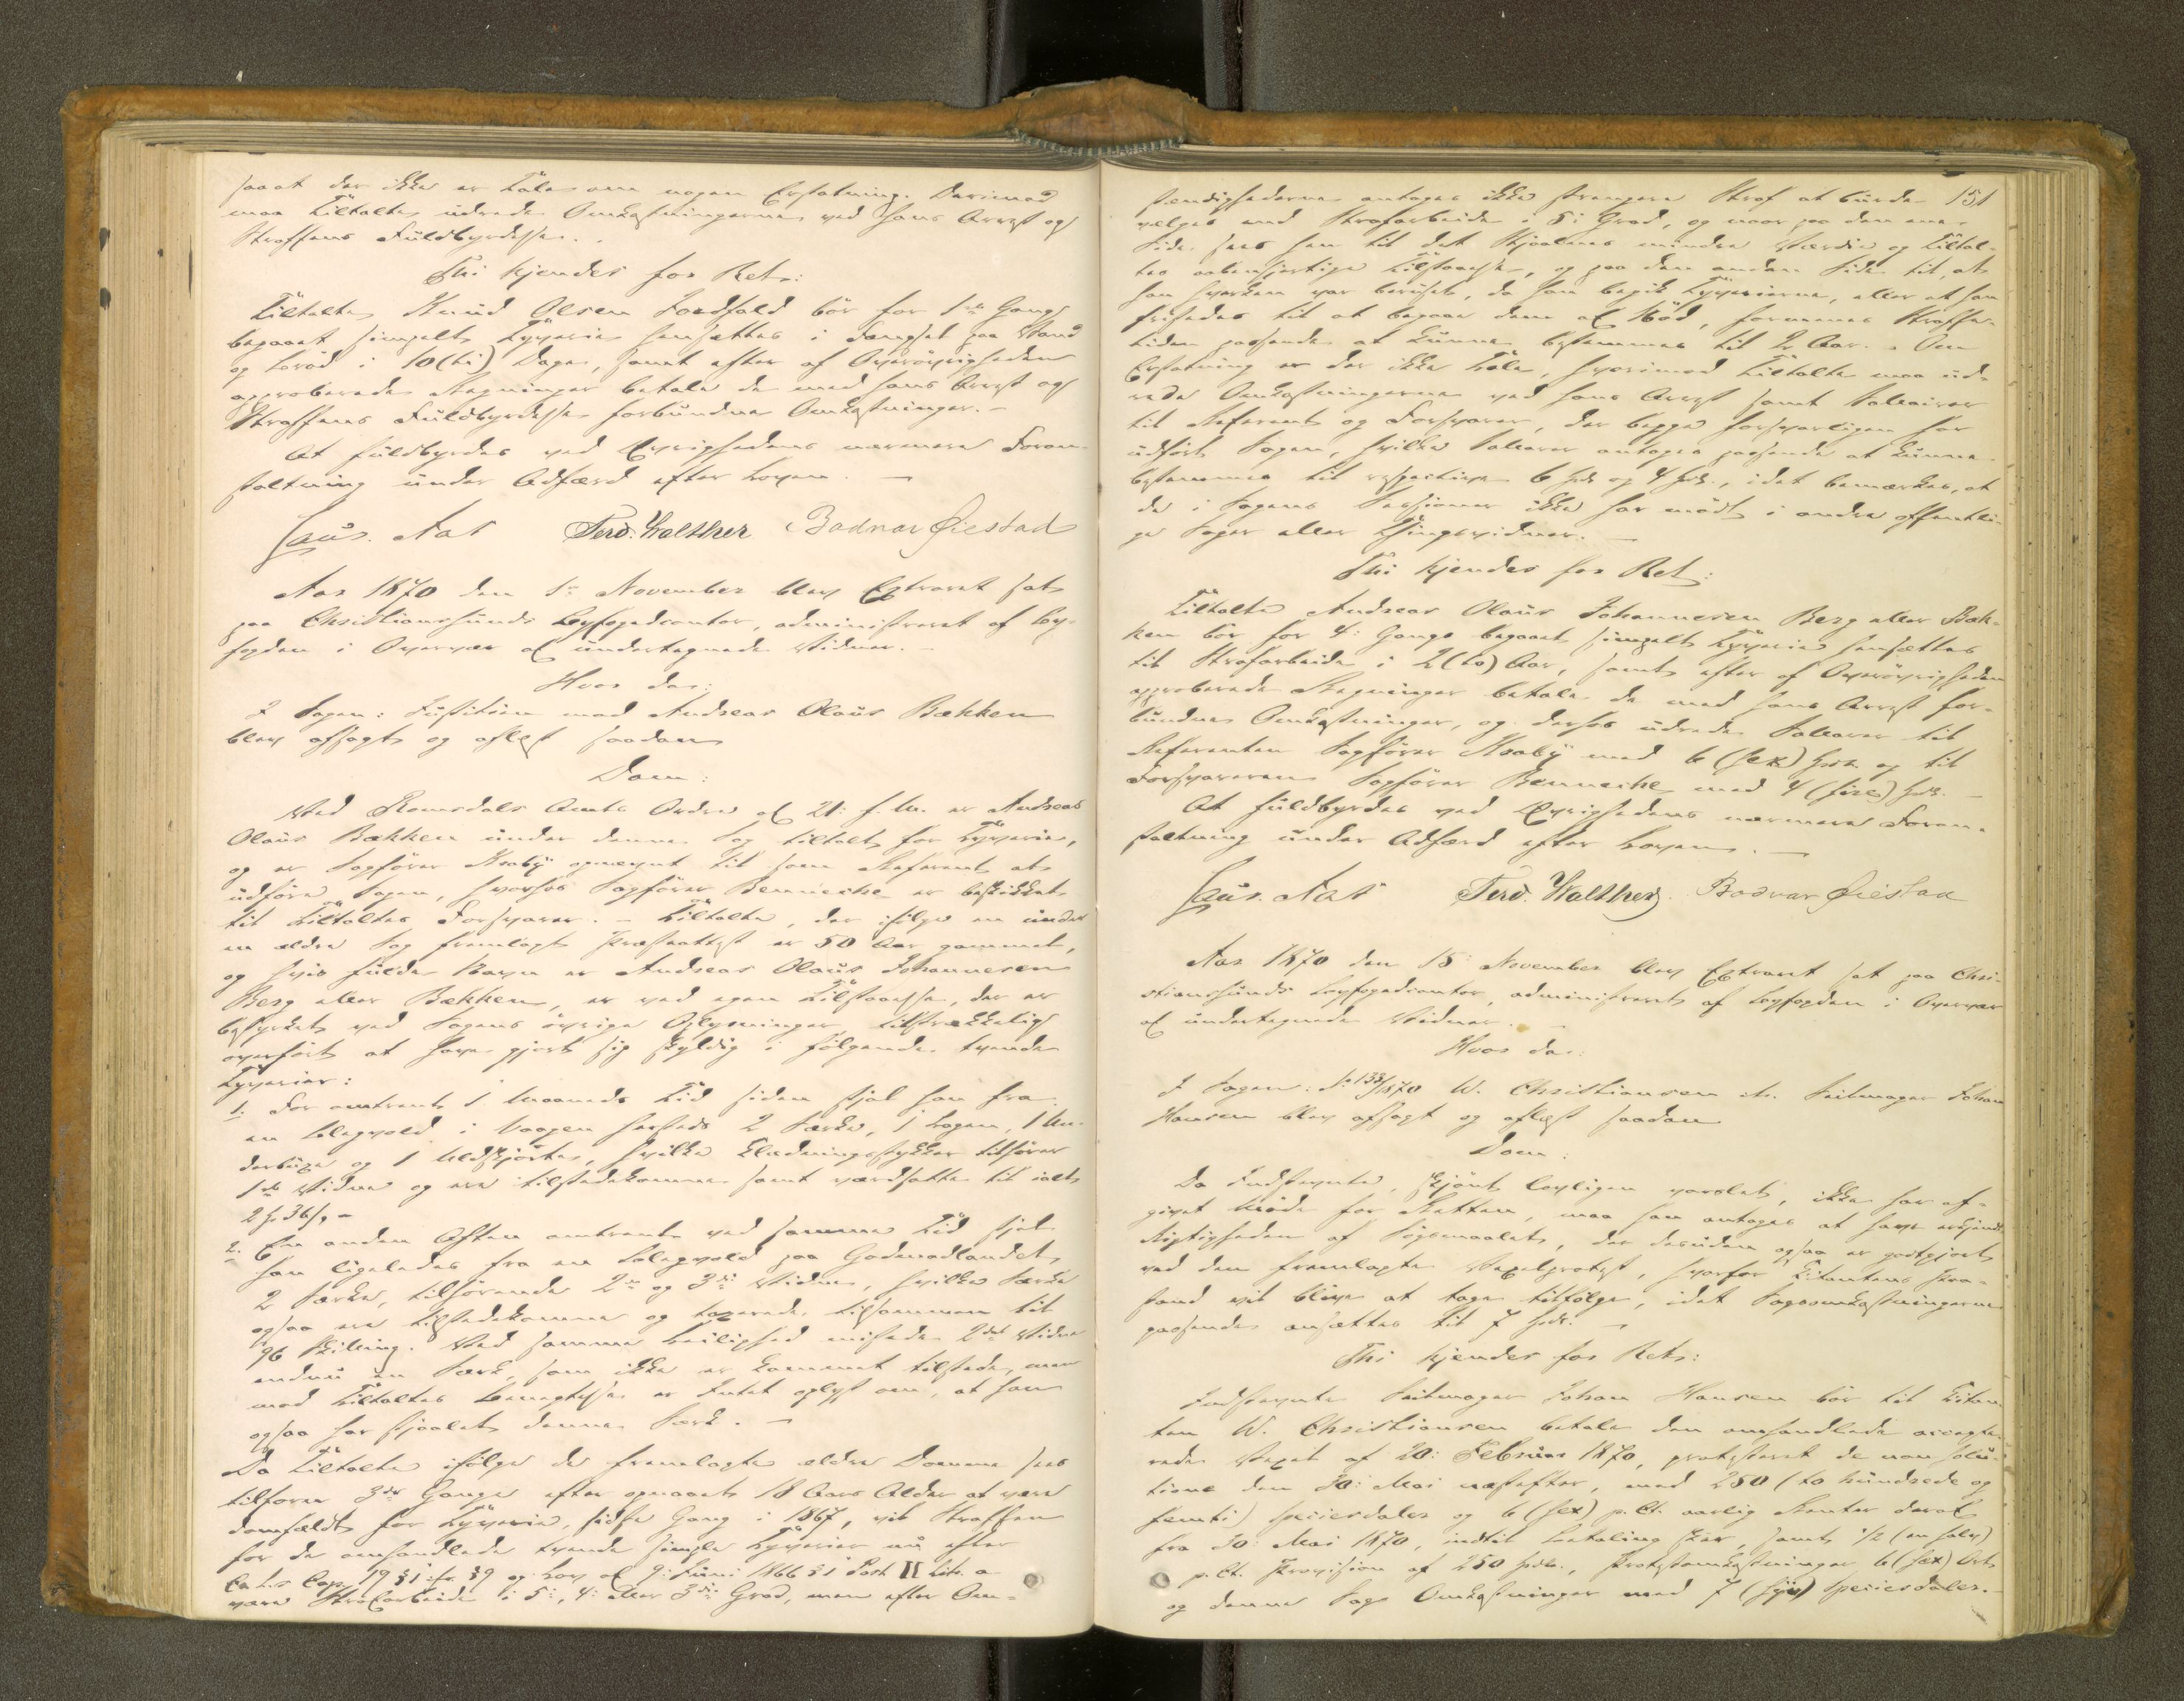 saaat der ikke er Tale om nogen Erstatning. Derimod
maa Tiltalte udrede Omkostningerne ved hans Arrest og
Straffens Fuldbyrdelse.
Thi kjendes for Ret:
Tiltalte Knud Olsen Fordfald bör for 1ste Gang
begaaet simpelt Tyverie hensættes i Fængsel paa Vand
og Bröd i 10 (ti) Dage, samt efter af Overövrigheden
approberede Regninger betale de med hans Arrest og
Straffens Fuldbyrdelse forbundne Omkostninger. –
At fuldbyrdes ved Övrighedens nærmere Foran-
staltning under Adfærd efter Loven. –
Ferd. Walther Bodvar Øiestad
Aar 1870 den 1: November blev Extraret sat
paa Christianssunds Byfogedcontor, administreret af By-
fogden i Overvær af undertegnede Vidner. –
Hvor da:
I Sagen: Justitien mod Andreas Olaus Bækken
blev afsagt og aflest saadan
Dom:
Ved Romsdals Amts Ordre af 21: f. M. er Andreas
Olaus Bækken under denne Sag tiltalt for Tyverie,
og er Sagförer Kraby opnævnt til som Referent at
udföre Sagen, hvorhos Sagförer Bennecke er beskikket
til Tiltaltes Forsvarer. – Tiltalte, der ifölge en under
en ældre Sag fremlagt Præsteattest er 50 Aar gammel,
og hvis fulde Navn er Andreas Olaus Johannesen
Berg eller Bækken, er ved egen Tilstaaelse, der er
bestyrket ved Sagens övrige Oplysninger tilstrækkelig
overfört at have gjort sig skyldig i fölgende tvende
Tyverier:
1. For omtrent 1 Maaneds Tid siden stjal han fra
en Blegvold i Vaagen herstede 2 Særke, 1 Lagen, 1 Un-
derbuxe og 1 Uldskjorte, hvilke Klædningsstykker tilhörer
1ste Vidne og ere tilstedekomne samt værdsatte til ialt
2 36 –
2. En anden Aften omtrent ved samme Tid stjal
han ligeledes fra en Blegvold paa Gomalandet
2 Særke, tilhörende 2det og 3die Vidne, hvilke Særke
ogsaa ere tilstedekomne og taxerede tilsammen til
96 Skilling. Ved samme Leilighed mistede 2det Vidne
endnu en Særk, som ikke er kommet tilstede, men
mod Tiltaltes Benegtelse er Intet oplyst om, at han
ogsaa har stjaalet denne Særk. –
Da Tiltalte ifölge de fremlagte ældre Domme sees
tilforn 3de Gange efter opnaaet 18 Aars Alder at være
domfældt for Tyverie, sidste Gang i 1867, vil Straffen
for de omhandlede tvende simple Tyverier nu efter
Cr. L.s Cap. 19 § 1 cfr. § 9 og Lov af 9: Juni 1866 § 1 Post II Lit. a
være Strafarbeide i 5:, 4: eller 3die Grad, men efter Om-
151
stændighederne antages ikke strengere Straf at burde
vælges end Strafarbeide i 5: Grad, og naar paa den ene
Side sees hen til det Stjaalnes mindre Værdie og Tiltal-
tes aabenhjertige Tilstaaelse, og paa den anden Side til, at
han hverken var beruset, da han begik Tyverierne, eller at han
fristedes til at begaae dem af Nöd, formenes Straffe-
tiden passende at kunne bestemmes til 2 Aar. – Om
Erstatning er der ikke Tale, hvorimod Tiltalte maa ud-
rede Omkostningerne ved hans Arrest samt Salairer
til Referent og Forsvarer, der begge forsvarligen har
udfört Sagen, hvilke Salairer antages passende at kunne
bestemmes til respective 6 Spd. og 4 Spd., idet bemærkes, at
de i Sagens Sessioner ikke har mödt i andre offentli-
ge Sager eller Thingsvidner. –
Thi kjendes for Ret:
Tiltalte Andreas Olaus Johannesen Berg eller Bæk-
ken bör for 4: Gangs begaaet simpelt Tyverie hensættes
til Strafarbeide i 2 (to) Aar, samt efter af Overövrigheden
approberede Regninger betale de med hans Arrest for-
bundne Omkostninger, og derhos udrede Salairer til
Referenten Sagförer Kraby med 6 (sex) Spd. og til
Forsvareren Sagförer Bennecke med 4 (fire) Spd. –
At fuldbyrdes ved Övrighedens nærmere Foran-
staltning under Adfærd efter Loven. –
Ferd. Walther Bodvar Øiestad
Aar 1870 den 15: November blev Extraret sat paa Chri-
stianssunds Byfogedcontor, administreret af Byfogden i Overvær
af undertegnede Vidner. –
Hvor da:
I Sagen: No 133/1870 W. Christiansen ctr. Seilmager Johan
Hansen blev afsagt og aflest saadan
Dom:
Da Indstevnte, skjönt lovligen varslet, ikke har af-
givet Möde for Retten, maa han antages at have erkjendt
Rigtigheden af Sögsmaalet, der desuden ogsaa er godtgjort
ved den fremlagte Vexelprotest, hvorfor Citantens Paa-
stand vil blive at tage tilfölge, idet Sagsomkostningerne
passende ansættes til 7 Spd. –
Thi kjendes for Ret:
Indstevnte Seilmager Johan Hansen bör til Citan-
ten W. Christiansen betale den omhandlede accepte-
rede Vexel af 20: Februar 1870, protesteret de non solu-
tione den 30: Mai næstefter, med 250 (to hundrede og
femti) Speciesdaler og 6 (sex) p. Ct. aarlig Renter deraf
fra 30: Mai 1870, indtil Betaling skeer, samt 1/2 (en halv)
p. Ct. Provision af 250 Spdlr., Protestomkostninger 6 (sex) Ort
og denne Sags Omkostninger med 7 (syv) Speciesdaler. –